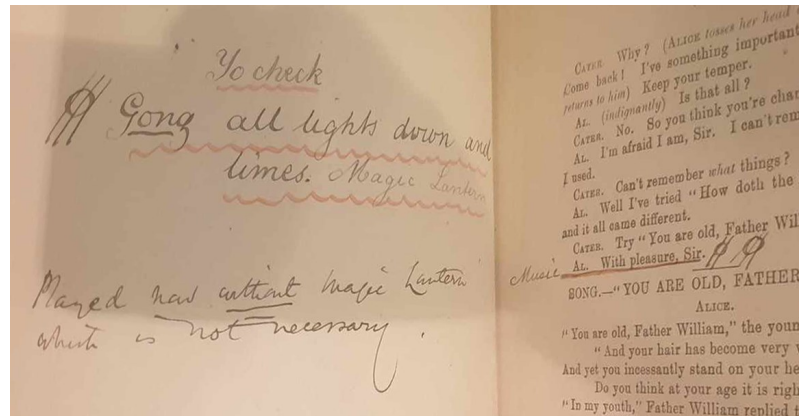 To check
Gong all lights down and
limes. Magic Lantern
Played now without magic Lantern
which is not necessary.
CATER. Why? (ALICE tosses her head
Come back! I've something important
returns to him) Keep your temper.
AL. (indignantly) Is that all?
CATER. No. So you think you're
AL. I'm afraid I am, Sir. I can't
I used.
CATER. Can't remember what things?
AL. Well I've tried "How doth the
and it all came different.
CATER. Try "You are old, Father
Music AL. With pleasure, Sir.
SONG.—"YOU ARE OLD, FATHER
ALICE.
"You are old, Father William," the
"And your hair has become very
And yet you incessantly stand on your
Do you think at your age it is
"In my youth," Father William replied